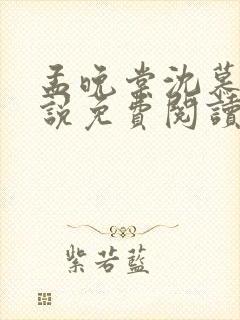 孟晚棠沈慕
說免費閱讀
紫若藍